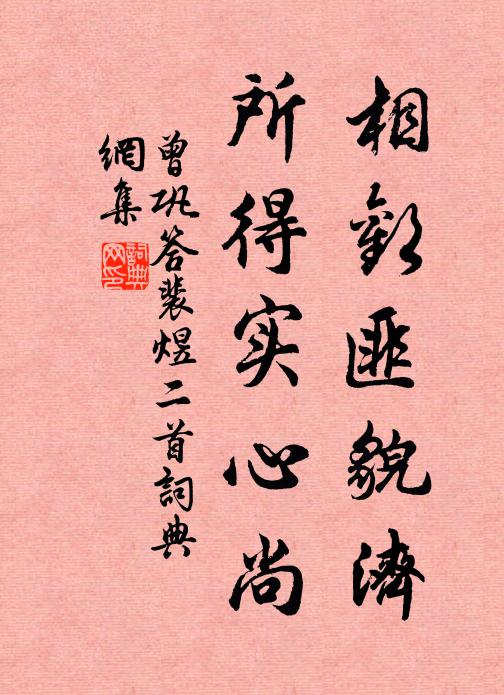 相歡匪貌濟
所得实心尚
曾巩答裴煜二首詞典
網集
詞典
网印